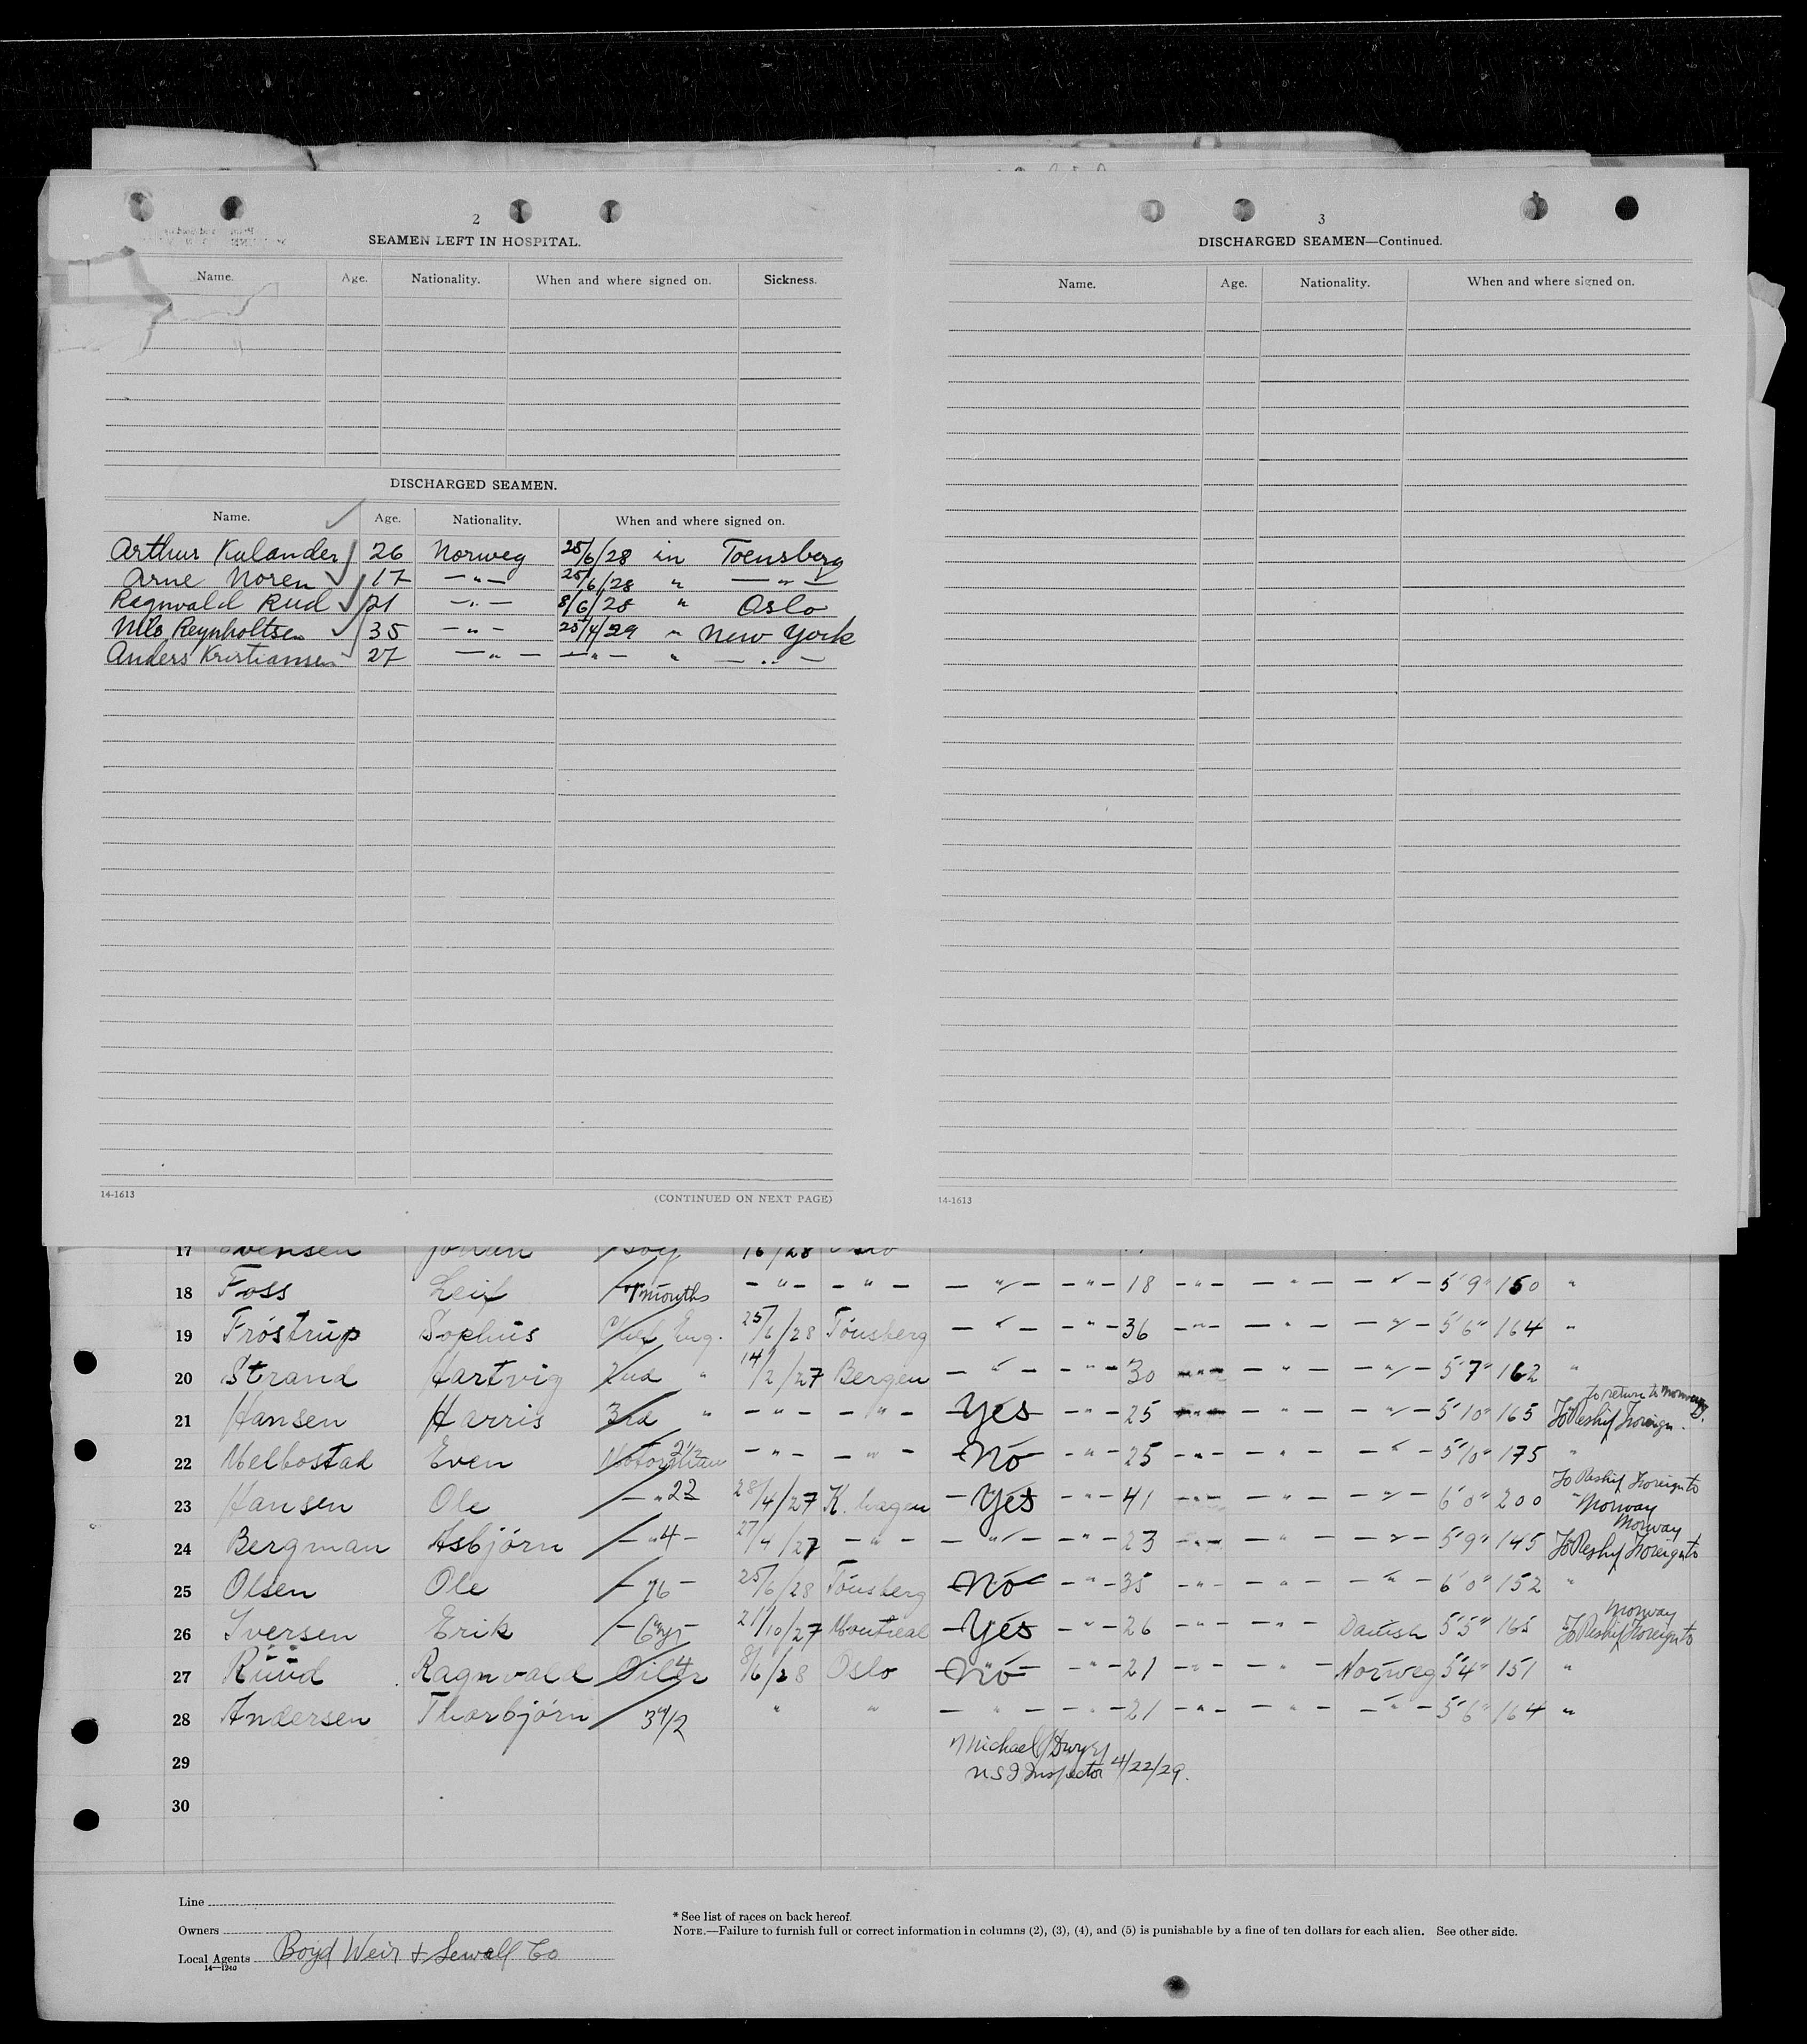 2
SEAMEN LEFT IN HOSPITAL.
Name. Age. Nationality. When and where signed on. Sickness.
DISCHARGED SEAMEN.
Name. Age. Nationality. When and where signed on.
Arthur Kulander 26 Norweg 25/6/28 in Toensberg
Arne Noren 17 —"— 25/6/28 " —"—
Ragnvald Rud 21 —"— 8/6/28 " Oslo
Nils Reynholtsen 35 —"— 25/4/29 " New York
Anders Kristiansen 27 —"— —"— " —"—
14-1613
(CONTINUED ON NEXT PAGE)
3
DISCHARGED SEAMEN—Continued.
Name. Age. Nationality. When and where signed on.
14-1613
17 Svensen Johan Boy /6/28 Oslo
18 Foss Leif 7 months —"— —"— —"— —"— 18 —"— —"— —"— 5'9" 150 "
19 Fróstrup Sophus Chief Eng. 25/6/28 Tönsberg —"— —"— 36 —"— —"— —"— 5'6" 164 "
20 Strand Hartvig 2nd " 14/2/27 Bergen —"— —"— 30 —"— —"— —"— 5'7" 162 "
21 Hansen Harris 3rd " —"— —"— Yes —"— 25 —"— —"— —"— 5'10" 165 To Reship Foreign. to return to Norway.
22 Melbostad Even Motorman 2 1/2 —"— —"— No —"— 25 —"— —"— —"— 5'10" 175 "
23 Hansen Ole —"— 22 28/4/27 K. hagen Yes —"— 41 —"— —"— —"— 6'0" 200 To Reship Foreign to Norway
24 Bergman Asbjórn —"— 4 27/4/27 —"— —"— —"— 23 —"— —"— —"— 5'9" 145 To Reship Foreign to Norway
25 Olsen Ole — 16 — 25/6/28 Tönsberg No —"— 35 —"— —"— —"— 6'0" 152 "
26 Iversen Erik — 6 yr — 21/10/27 Montreal Yes —"— 26 —"— —"— Danish 5'5" 165 To Reship Foreign to Norway
27 Rüüd Ragnvald Oiler 4 8/6/28 Oslo No —"— 21 —"— —"— Norweg 5'4" 151 "
28 Andersen Thorbjórn 3 1/2 " " —"— —"— 21 —"— —"— —"— 5'6" 164 "
29 Michael Dwyer
U S I Inspector 4/22/29.
30
Line
Owners
Local Agents Boyd Weir & Sewall Co
14—1240
* See list of races on back hereof.
NOTE.—Failure to furnish full or correct information in columns (2), (3), (4), and (5) is punishable by a fine of ten dollars for each alien. See other side.